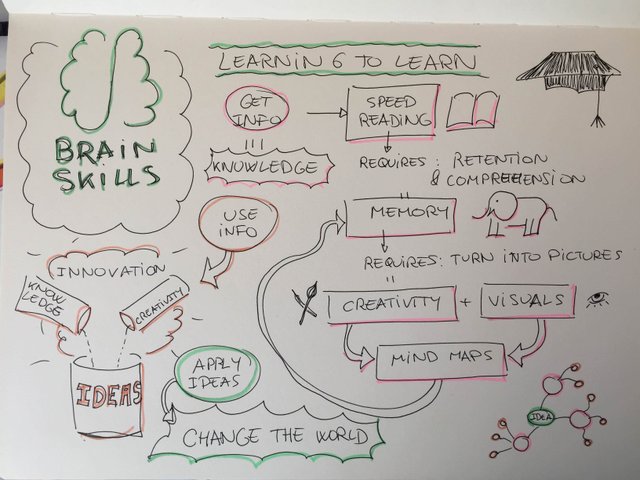 LEARNING TO LEARN
BRAIN
SKILLS
GET
INFO
SPEED
READING
KNOWLEDGE
REQUIRES: RETENTION
& COMPREHENSION
USE
INFO
MEMORY
REQUIRES: TURN INTO PICTURES
INNOVATION
KNOW
LEDGE
CREATIVITY
IDEAS
CREATIVITY + VISUALS
MIND MAPS
APPLY
IDEAS
CHANGE THE WORLD
IDEA